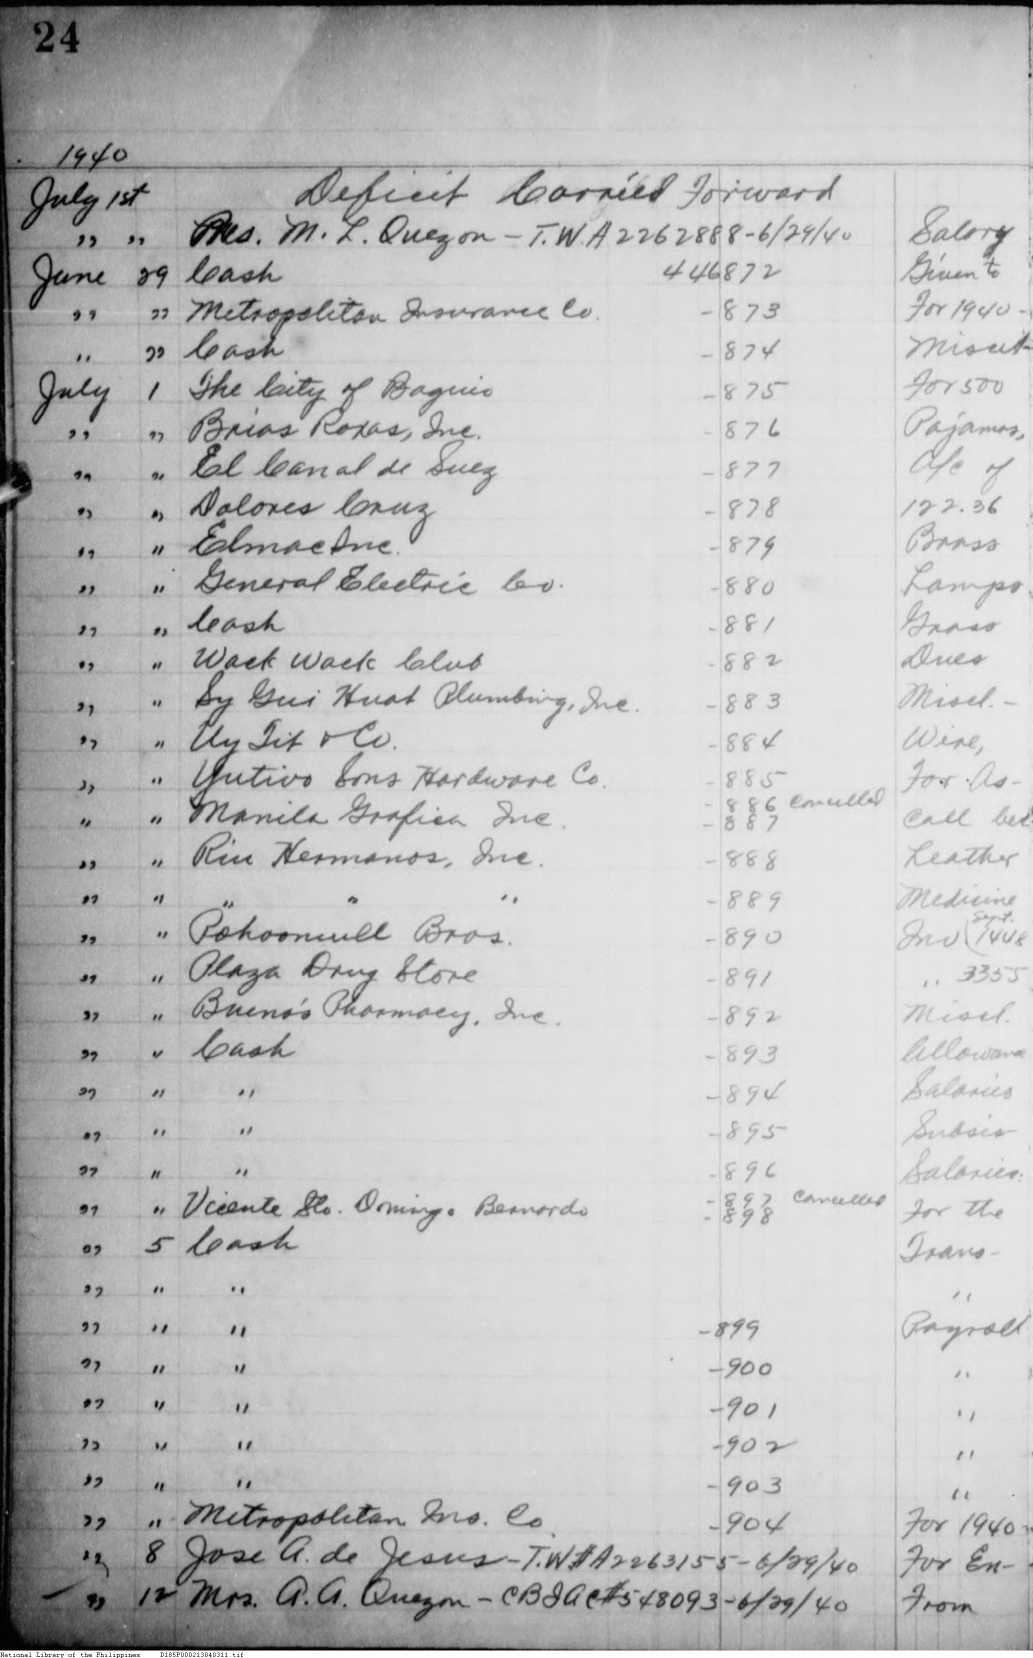 24
1940
July 1st Deficit Carried Forward
" " Pres. M. L. Quezon - T.W.A 2262888 - 6/29/40 Salary
June 29 Cash 446872 Given to
" " Metropolitan Insurance Co. -873 For 1940 -
" " Cash -874
July 1 The City of Baguio -875 For 500
" " Brias Roxas, Inc. -876 Pajamas,
" " El Canal de Suez -877 a/c of
" " Dolores Cruz -878 122.36
" " Elmac Inc. -879 Brass
" " General Electric Co. -880 Lamps
" " Cash -881 Grass
" " Wack Wack Club -882 Dues
" " Sy Gui Huat Plumbing, Inc. -883 Miscl. -
" " Uy Tit & Co. -884 Wire,
" " Yutivo Sons Hardware Co. -885 For As-
-886 Cancelled
" " Manila Grafica Inc. -887 Call
" " Riu Hermanos, Inc. -888 Leather
" " " " " -889 Medicine
Sept.
" " Pohoomull Bros. -890 Inv (1448
" " Plaza Drug Store -891 " 3355
" " Bueno's Pharmacy, Inc. -892 Miscl.
" " Cash -893 Allowance
" " " -894 Salaries
" " " -895 Subsis-
" " " -896 Salaries
-897 Cancelled
" " Vicente Sto. Domingo Bernardo -898 For the
" 5 Cash Trans-
" " " "
" " " -899 Payroll
" " " -900 "
" " " -901 "
" " " -902 "
" " " -903 "
" " Metropolitan Ins. Co. -904 For 1940 -
" 8 Jose A. de Jesus - T.W#A2263155 - 6/29/40 For En-
" 12 Mrs. A. A. Quezon - CBIAC#548093 - 6/29/40 From
National Library of the Philippines D185P000213840311.tif